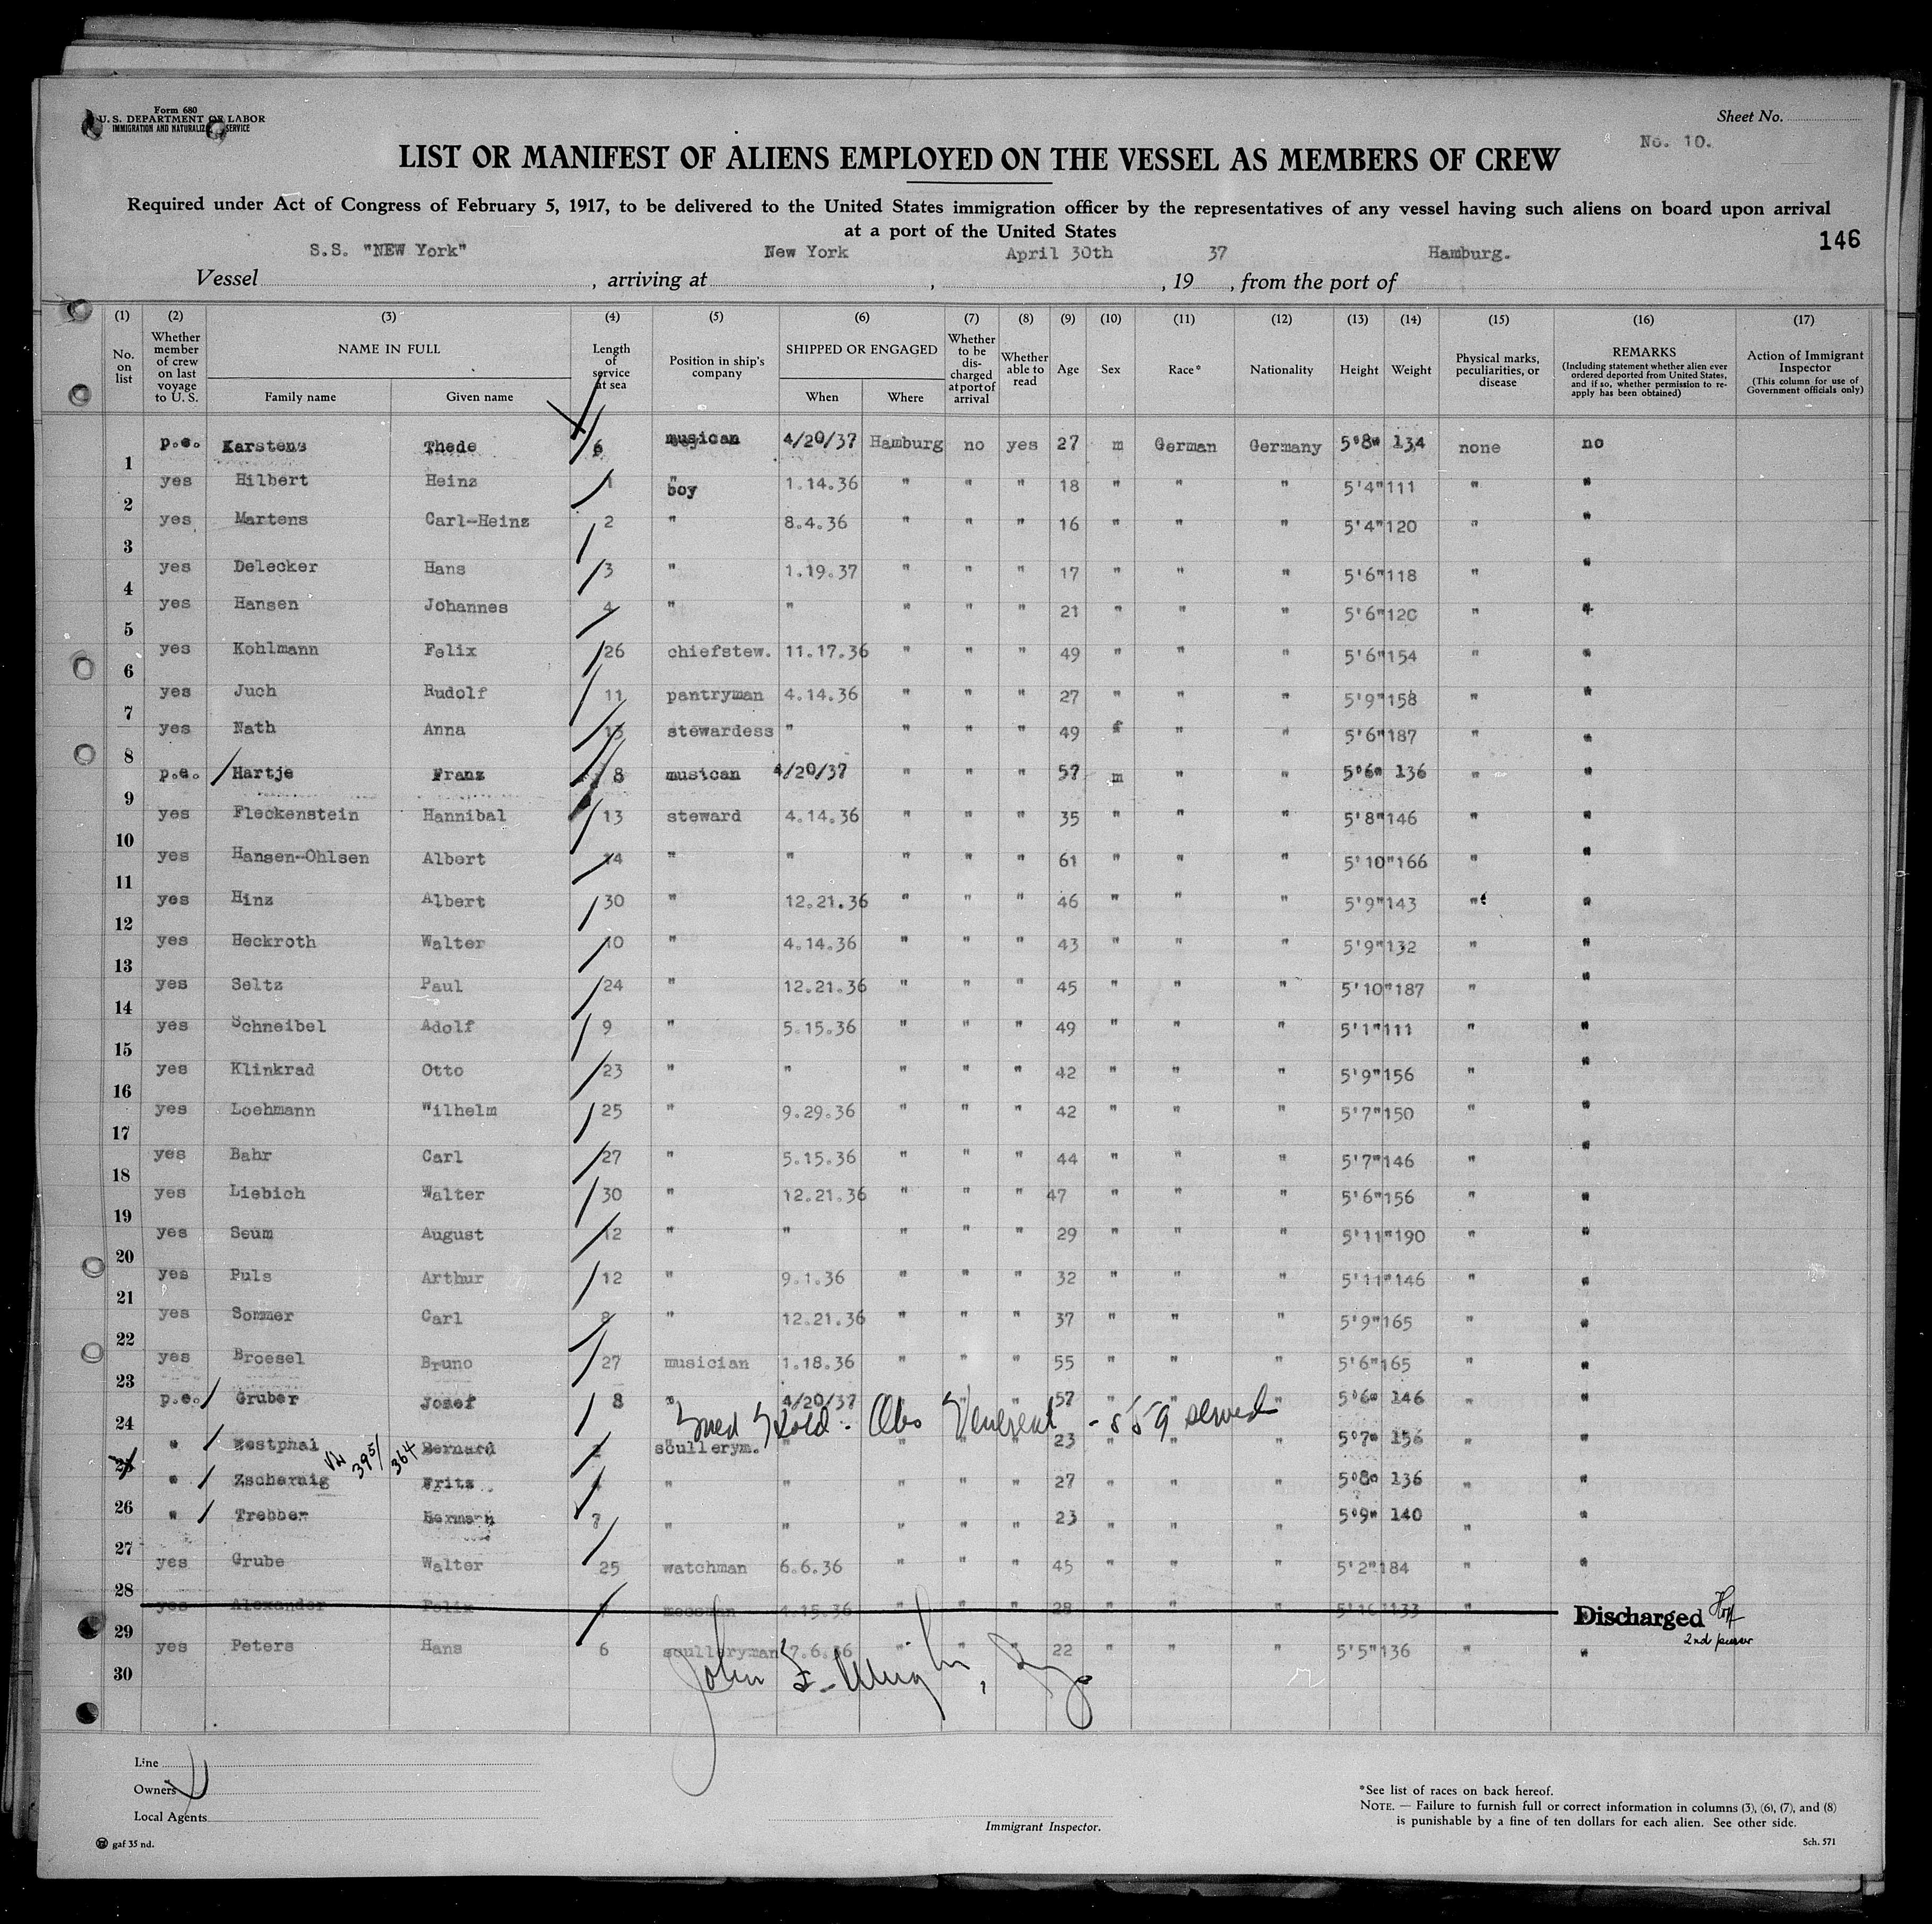 Form 680
U. S. DEPARTMENT OF LABOR
IMMIGRATION AND NATURALIZ SERVICE
Sheet No.
No. 10.
LIST OR MANIFEST OF ALIENS EMPLOYED ON THE VESSEL AS MEMBERS OF CREW
Required under Act of Congress of February 5, 1917, to be delivered to the United States immigration officer by the representatives of any vessel having such aliens on board upon arrival
at a port of the United States
146
S.S. "NEW York" New York April 30th 37 Hamburg.
Vessel , arriving at , , 19 , from the port of
(1) (2) (3) (4) (5) (6) (7) (8) (9) (10) (11) (12) (13) (14) (15) (16) (17)
No. on list
Whether member of crew on last voyage to U. S.
NAME IN FULL
Family name Given name
Length of service at sea
Position in ship's company
SHIPPED OR ENGAGED
When Where
Whether to be discharged at port of arrival
Whether able to read
Age Sex Race* Nationality Height Weight
Physical marks, peculiarities, or disease
REMARKS
(Including statement whether alien ever ordered deported from United States, and if so, whether permission to re-apply has been obtained)
Action of Immigrant Inspector
(This column for use of Government officials only)
1 p.e. Karstens Thede 6 musican 4/20/37 Hamburg no yes 27 m German Germany 5'8" 134 none no
2 yes Hilbert Heinz 1 " boy 1.14.36 " " " 18 " " " 5'4" 111 " "
3 yes Martens Carl-Heinz 2 " 8.4.36 " " " 16 " " " 5'4" 120 " "
4 yes Delecker Hans 3 " 1.19.37 " " " 17 " " " 5'6" 118 " "
5 yes Hansen Johannes 4 " " " " " 21 " " " 5'6" 120 " "
6 yes Kohlmann Felix 26 chiefstew. 11.17.36 " " " 49 " " " 5'6" 154 " "
7 yes Juch Rudolf 11 pantryman 4.14.36 " " " 27 " " " 5'9" 158 " "
8 yes Nath Anna 13 stewardess " " " " 49 f " " 5'6" 187 " "
9 p.e. Hartje Franz 8 musican 4/20/37 " " " 57 m " " 5'6" 136 " "
10 yes Fleckenstein Hannibal 13 steward 4.14.36 " " " 35 " " " 5'8" 146 " "
11 yes Hansen-Ohlsen Albert 14 " " " " " 61 " " " 5'10" 166 " "
12 yes Hinz Albert 30 " 12.21.36 " " " 46 " " " 5'9" 143 " "
13 yes Heckroth Walter 10 " 4.14.36 " " " 43 " " " 5'9" 132 " "
14 yes Seltz Paul 24 " 12.21.36 " " " 45 " " " 5'10" 187 " "
15 yes Schneibel Adolf 9 " 5.15.36 " " " 49 " " " 5'1" 111 " "
16 yes Klinkrad Otto 23 " " " " " 42 " " " 5'9" 156 " "
17 yes Loehmann Wilhelm 25 " 9.29.36 " " " 42 " " " 5'7" 150 " "
18 yes Bahr Carl 27 " 5.15.36 " " " 44 " " " 5'7" 146 " "
19 yes Liebich Walter 30 " 12.21.36 " " " 47 " " " 5'6" 156 " "
20 yes Seum August 12 " " " " " 29 " " " 5'11" 190 " "
21 yes Puls Arthur 12 " 9.1.36 " " " 32 " " " 5'11" 146 " "
22 yes Sommer Carl 8 " 12.21.36 " " " 37 " " " 5'9" 165 " "
23 yes Broesel Bruno 27 musician 1.18.36 " " " 55 " " " 5'6" 165 " "
24 p.e. Gruber Josef 8 " 4/20/37 " " " 57 " " " 5'6" 146 " "
Venereal - 559 served
25 " Westphal Bernard 2 scullerym. " " " " 23 " " " 5'7" 156 " "
395/364
26 " Zschernig Fritz 4 " " " " " 27 " " " 5'8" 136 " "
27 " Trebber Hermann 7 " " " " " 23 " " " 5'9" 140 " "
28 yes Grube Walter 25 watchman 6.6.36 " " " 45 " " " 5'2" 184 " "
29 yes Alexander Felix messman 4.15.36 " " " 28 " " " 133 " Discharged
2nd purser
30 yes Peters Hans 6 sculleryman 7.6.36 " " " 22 " " " 5'5" 136 " "
John
Line
Owners
Local Agents
Immigrant Inspector.
*See list of races on back hereof.
NOTE. — Failure to furnish full or correct information in columns (3), (6), (7), and (8)
is punishable by a fine of ten dollars for each alien. See other side.
gaf 35 nd.
Sch. 571